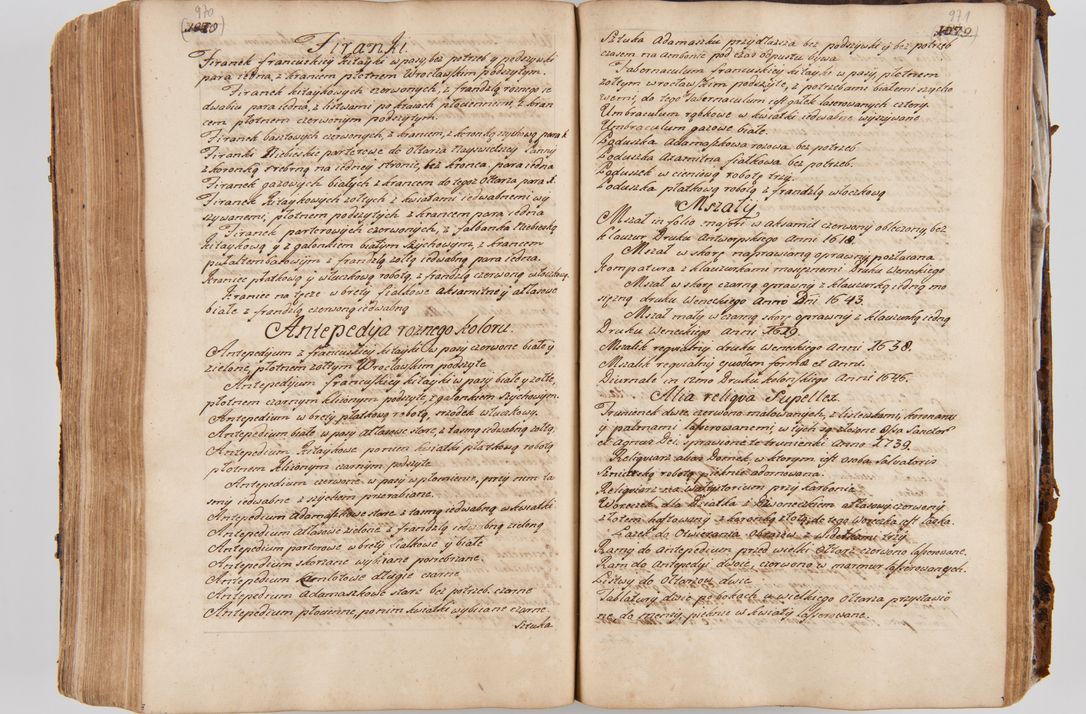 970
(1070)
Firanki.
Firanek francuskiey kitayki w pasy bez potrzeb y podszywki
para iedna, z krancem płotnem Wrocławskim podszytym.
Firanek kitaykowych czerwonych, z frandzlą roznego ie
dwabiu para iedna, z listwami po kraiach płociennemi, z kran
cem płotnem czerwonym podszytych.
Firanek basztowych czerwonych, z krancem, z koronką szychową para 1.
Firanki Niebieskie parterowe do Ołtarza Nayswietszey Panny
z koronką srebrną na iedney stronie, bez kranca. para iedna
Firanek gazowych białych z krancem do tegoz Ołtarza para 1.
Firanek kitaykowych zołtych z kwiatami iedwabnemi wy
szywanemi, płotnem podszytych z krancem para iedna
Firanek parterowych czerwonych, z falbanką Niebieską
kitaykową y z galonkiem białym szychowym, z krancem
z frandzlą zołtą iedwabną para iedna.
Kraniec płatkową y włuczkową robotą, z frandzlą czerwoną włoczkową.
Kraniec na łęze w brety fiałkowe aksamitne y atłasowe
białe z frandzlą czerwoną iedwabną
Antepedija roznego koloru.
Antepedyum z francuskiey kitayki w pasy czerwone białe y
zielone, płotnem zołtym Wrocławskim podszyte
Antepedyum francuskiey kitayki w pasy białe y zołte,
płotnem czarnym klijonym podszyte, z galonkiem szychowym.
Antepedium w brety płatkową robotą, srzodek włuczkowy.
Antepedium białe w pasy atłasowe stare, z tasmą iedwabną zołtą.
Antepedium kitaykowe poniem kwiatki płatkową robotą
płotnem klijonym czarnym podszyte
Antepedium czerwone w pasy w płomienie, przy nim ta
smy iedwabne z szychem przerabiane.
Antepedium Adamaszkowe stare z tasmą iedwabną w kwiatki
Antepedium atłasowe zielone, z frandzlą iedwabną zieloną
Antepedium parterowe w brety fiałkowe y białe
Antepedium skorzane wyżłzane posrebrzane.
Antepedium kamlotowe długie czarne
Antepedium adamaszkowe stare bez potrzeb. czarne
Antepedium płocienne, ponim kwiatki wybijane czarne.
Sztuka
971
(1079)
Sztuka Adamaszku przydłuzsza bez podszywki y bez potrzeb
czasem na ambonie pod czas odpustu bywa
Tabernaculum francuskiey kitayki w pasy, płotnem
zołtym wrocławskim podszyte, z potrzebami białemi szycho
wemi, do tego tabernaculum iest gałek laserowanych cztery.
Umbraculum rąbkowe w kwiatki iedwabne wyszywane
Umbraculum gazowe białe.
Poduszka Adamaszkowa rozowa bez potrzeb
Poduszka Axamitna fiałkowa bez potrzeb.
Poduszek w cieniową robotę trzy.
Poduszka płatkową robotą z frandzlą włoczkową
Mszały
Mszał in folio majori w aksamit czerwony obleczony bez
klauzur Druku Antwerpskiego Anni 1618.
Mszał w skorę naprawioną oprawny pozłacana
kompatura z klauzurkami mosiężnemi Druku Weneckiego
Mszał w skorę czarną oprawny z klauzurką iedną mo
siężną druku Weneckiego Anno Dni 1643.
Mszał mały w czarną skorę oprawny z klauzurką iedną
Druku Weneckiego Anni 1629.
Mszalik requialny druku Weneckiego Anni 1638.
Mszalik requialny ejusdem formæ et Anni.
Diurnale in 12mo Druku kolonskiego Anni 1646.
Alia reliqva Supellex.
Trunienek dwie czerwono malowanych, z listewkami, koronami
y palmami laserowanemi, w tych są złozone Ossa Sanctor
et Agnus Dei, sprawione te trunienki Anno 1739.
Religwiarz alias Domek, w ktorym iest osoba Salvatoris
Snicerską robotą pieknie adornowana.
Religwiarz na przy karbonie.
Woreczek dla Pziałka z Dzwoneczkiem atłasowy, czerwony
złotem haftowany z koronką złotą, do tego Woreczka iest laska.
Lasek do Otwierania Obrazow z widełkami trzy.
Ramy do Antepedium przed wielki Ołtarz czerwono laserowane.
Ram do Antepedij dwoie, czerwono w marmur laserowanych.
Listwy do Ołtarzow dwie
Tablatury dwie po bokach u wielkiego Ołtarza przystawio
ne, do sciany, pieknie w kwiaty laserowane.